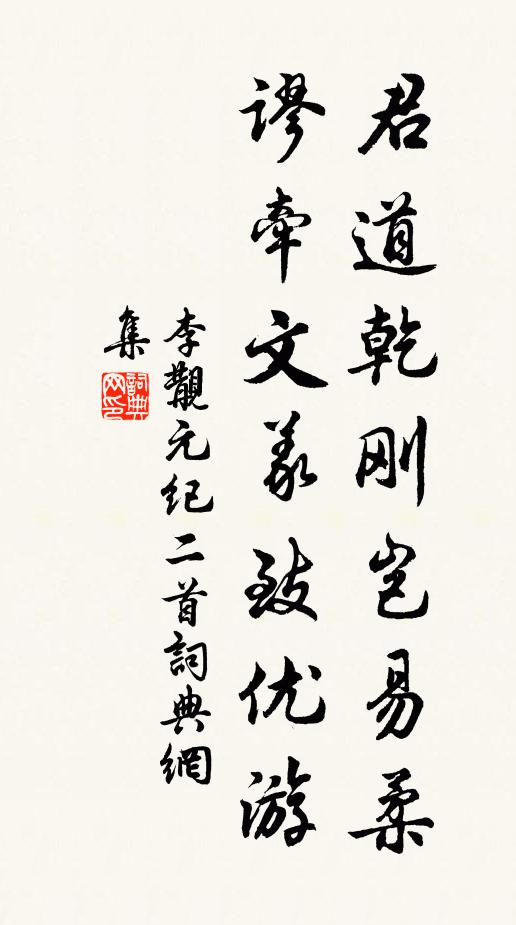 君道乾刚岂易柔
谬牵文义致优游
李觏元纪二首詞典網
集
詞典
网印